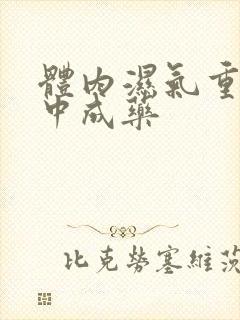 體內濕氣重
中成藥
比克勞塞維茨